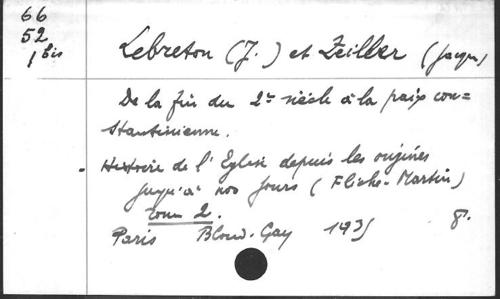 66
52
1 bis
Lebreton (J.) et Zeiller (Jacques)
De la fin du 2e siècle à la paix con-
stantinienne.
- Histoire de l'Eglise depuis les origines
jusqu'à nos jours (Fliche-Martin)
tome 2.
Paris Bloud-Gay 1935 8°.